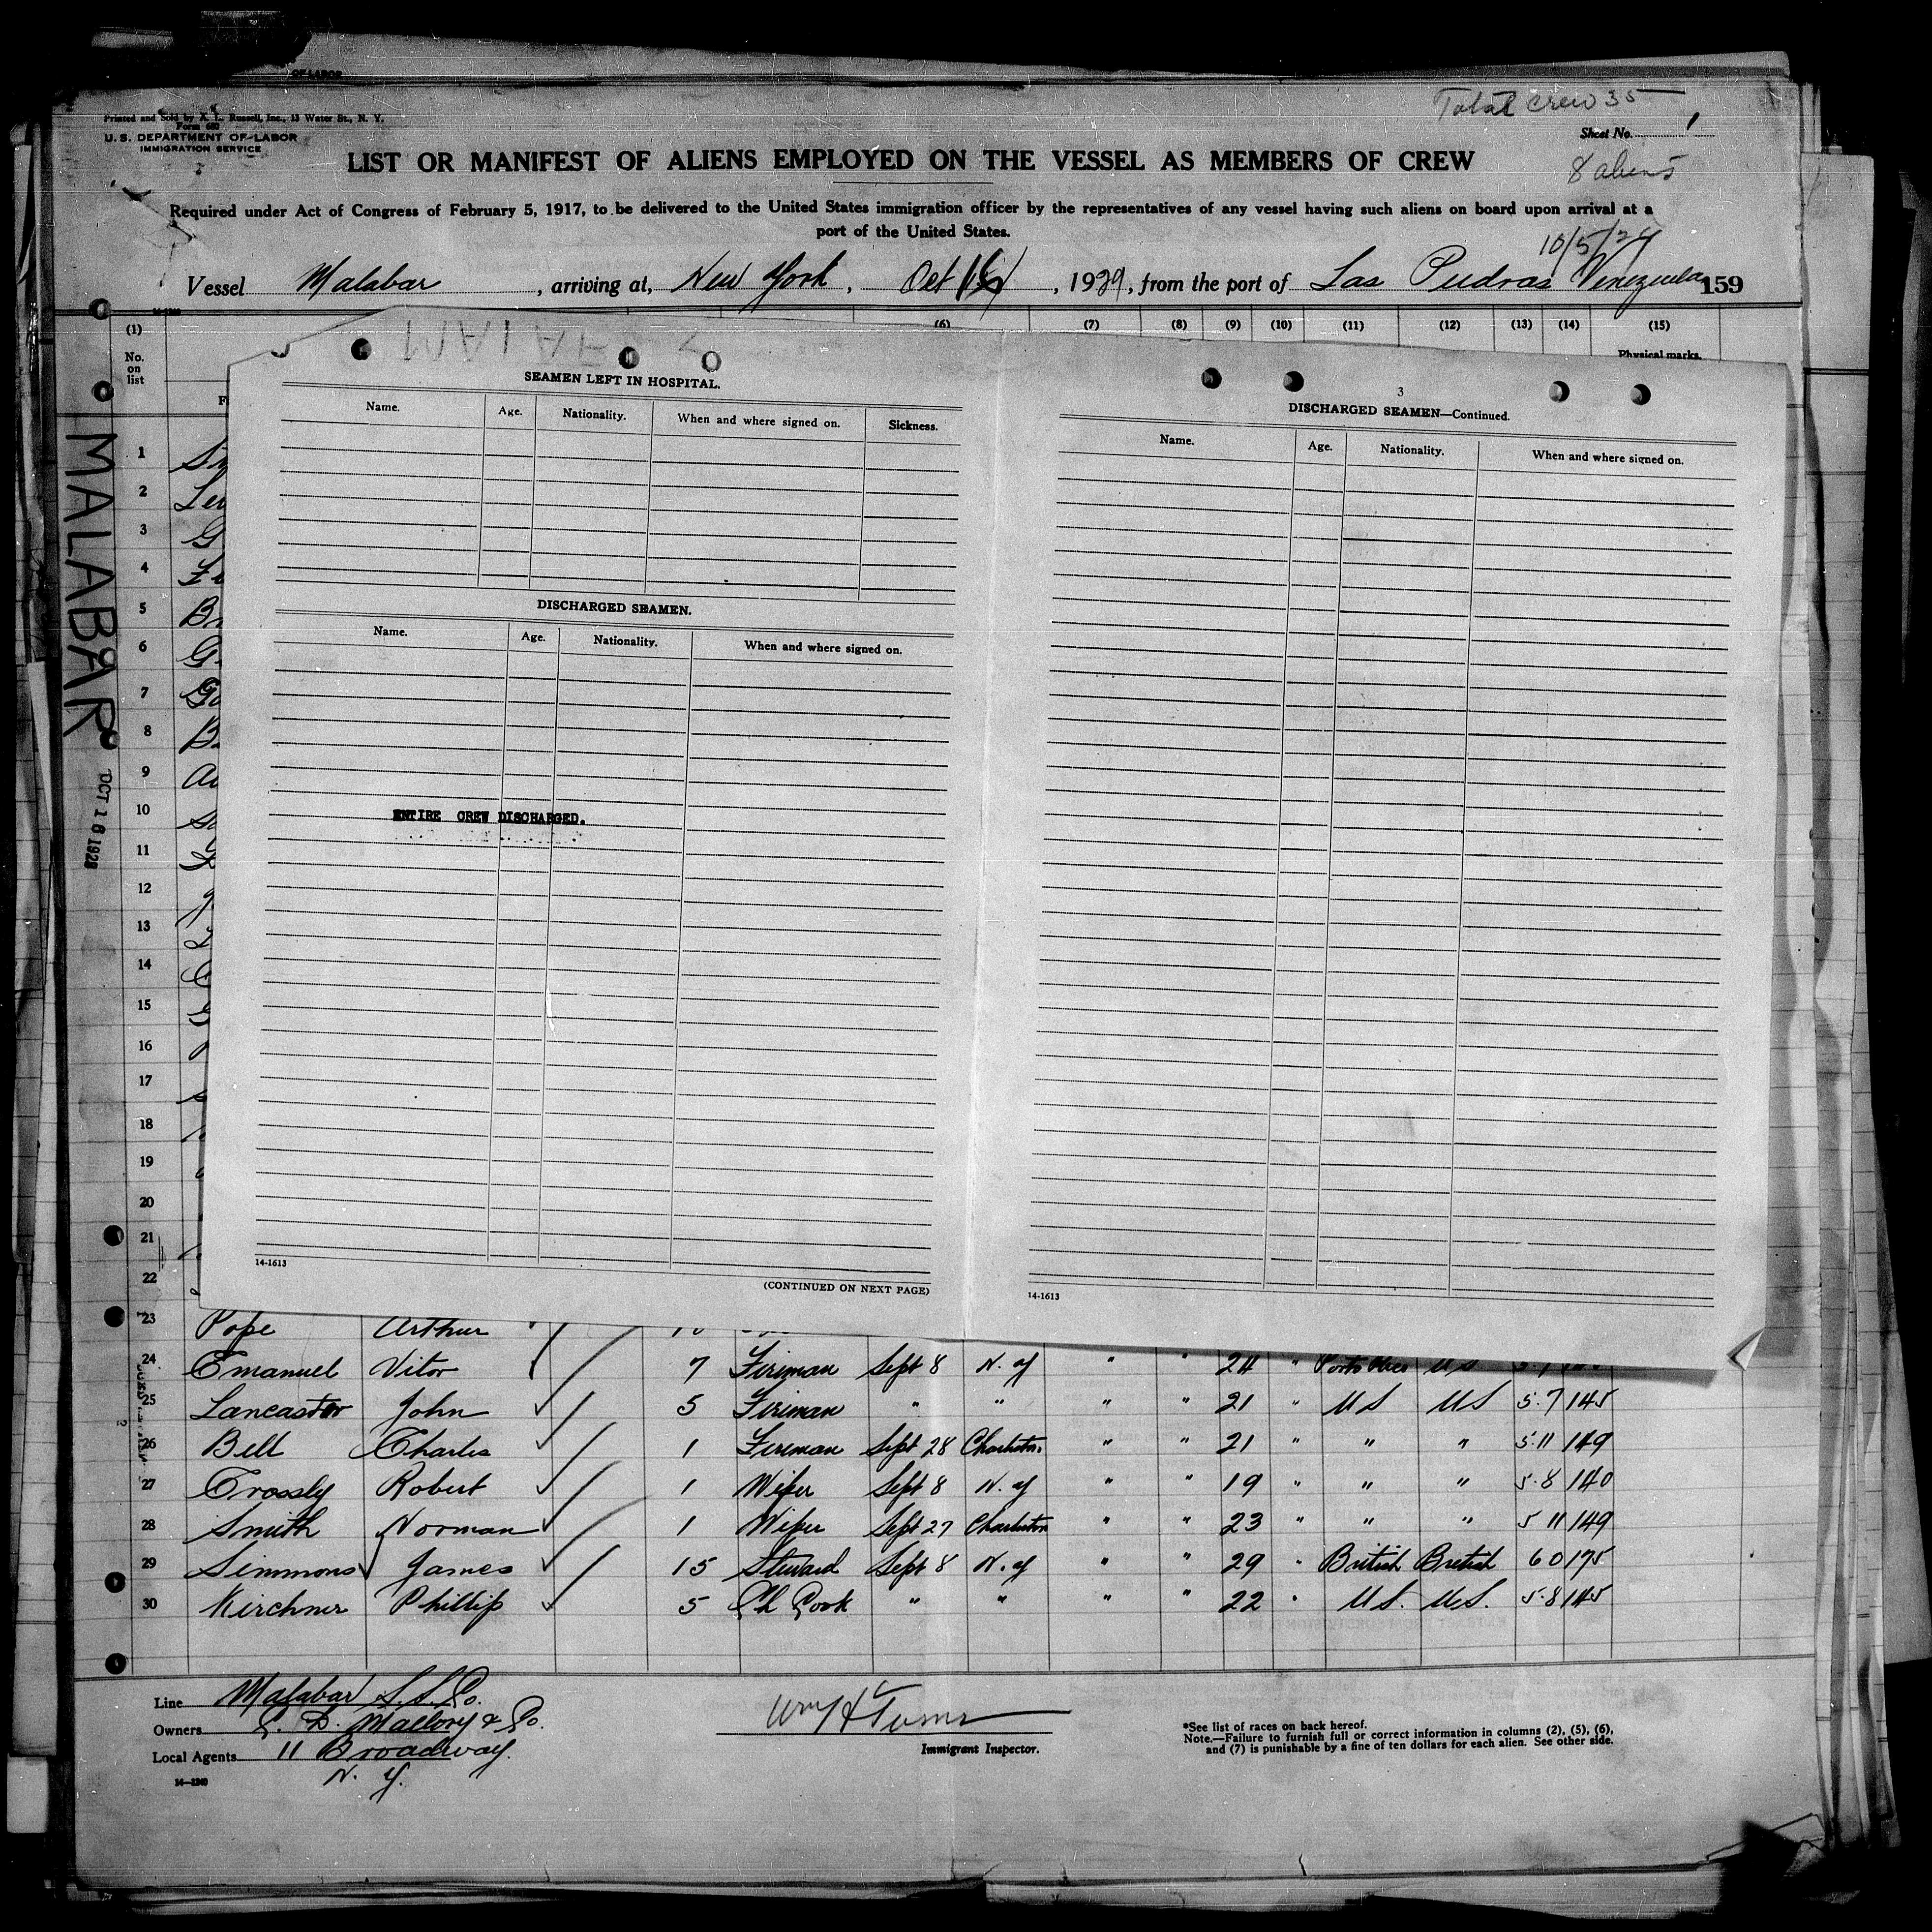 OF LABOR
Total crew 35
Printed and Sold by X. L. Russell, Inc., 13 Water St., N. Y.
Form 680
U. S. DEPARTMENT OF LABOR
IMMIGRATION SERVICE
Sheet No. 1
LIST OR MANIFEST OF ALIENS EMPLOYED ON THE VESSEL AS MEMBERS OF CREW
8 aliens
Required under Act of Congress of February 5, 1917, to be delivered to the United States immigration officer by the representatives of any vessel having such aliens on board upon arrival at a
port of the United States.
10/5/29
Vessel Malabar, arriving at, New York, Oct 16, 1929, from the port of Las Piedras Venezuela 159
(1) (6) (7) (8) (9) (10) (11) (12) (13) (14) (15)
No. on list
Physical marks,
MALABAR
OCT 16 1929
SEAMEN LEFT IN HOSPITAL.
Name. Age. Nationality. When and where signed on. Sickness.
DISCHARGED SEAMEN.
Name. Age. Nationality. When and where signed on.
ENTIRE CREW DISCHARGED.
14-1613
(CONTINUED ON NEXT PAGE)
3
DISCHARGED SEAMEN—Continued.
Name. Age. Nationality. When and where signed on.
14-1613
1
2
3
4
5
6
7
8
9
10
11
12
13
14
15
16
17
18
19
20
21
22
23 Pope Arthur
24 Emanuel Vitor 7 Fireman Sept 8 N. Y " " 24 " Porto Rico US
25 Lancaster John 5 Fireman " " " " 21 " US US 5.7 145
26 Bell Charles 1 Fireman Sept 28 Charleston " " 21 " " " 5.11 149
27 Crossly Robert 1 Wiper Sept 8 N. Y " " 19 " " " 5.8 140
28 Smith Norman 1 Wiper Sept 27 Charleston " " 23 " " " 5 11 149
29 Simmons James 15 Steward Sept 8 N. Y " " 29 " British British 6 0 175
30 Kirchner Phillip 5 Ch Cook " " " " 22 " U.S. U.S. 5.8 145
Line Malabar S.S. Co.
Owners C. D. Mallory & Co.
Local Agents 11 Broadway.
N. Y.
14—1240
Immigrant Inspector.
*See list of races on back hereof.
Note.—Failure to furnish full or correct information in columns (2), (5), (6),
and (7) is punishable by a fine of ten dollars for each alien. See other side.